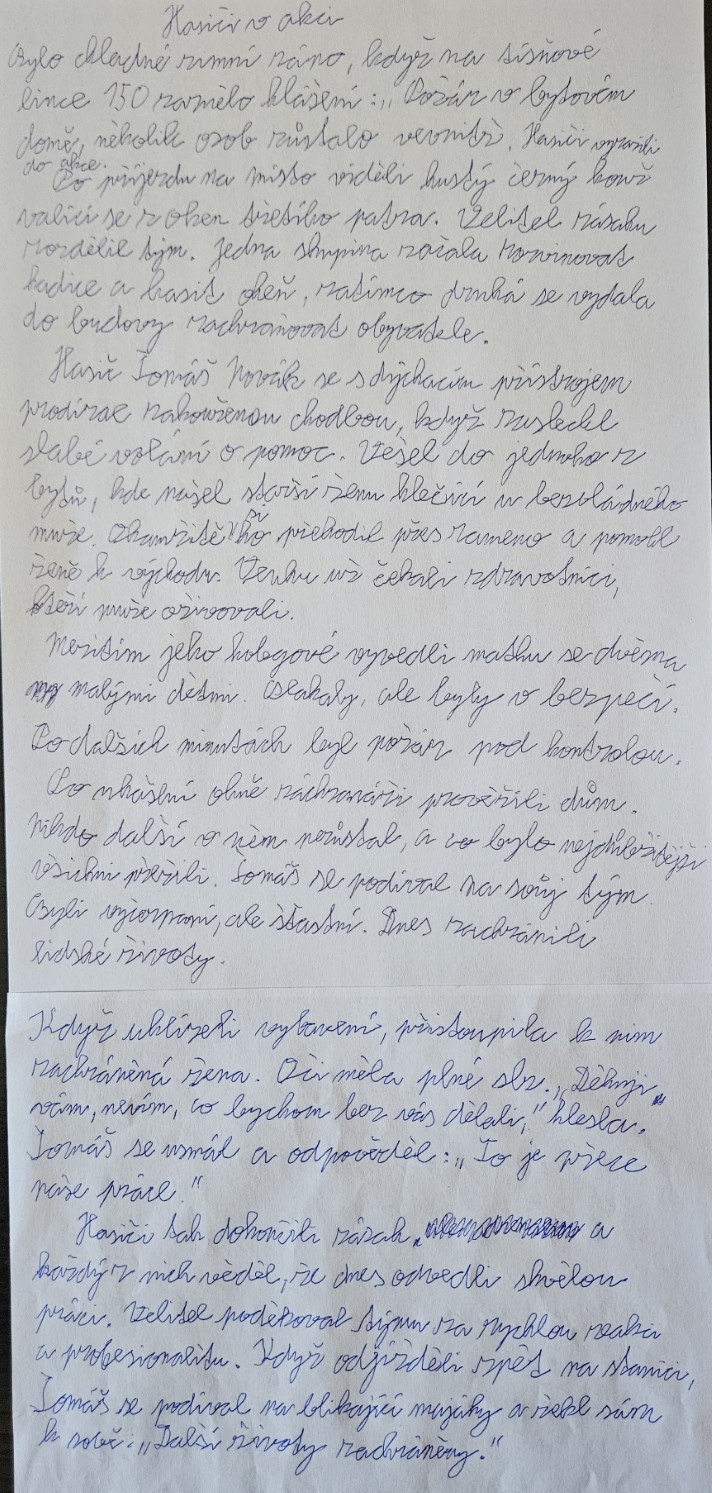 Hasiči v akci
Bylo chladné zimní ráno, když na tísňové
lince 150 zaznělo hlášení: „Požár v bytovém
domě, několik osob zůstalo uvnitř. Hasiči vyrazili
do akce.
Po příjezdu na místo viděli hustý černý kouř
valící se z oken třetího patra. Velitel zásahu
rozdělil tým. Jedna skupina začala rozvinovat
hadice a hasit oheň, zatímco druhá se vydala
do budovy zachraňovat obyvatele.
Hasič Tomáš Novák se s dýchacím přístrojem
prodíral zakouřenou chodbou, když zaslechl
slabé volání o pomoc. Vešel do jednoho z
bytů, kde našel starší ženu klečící u bezvládného
muže. Okamžitě si ho přehodil přes rameno a pomohl
ženě k východu. Venku už čekali zdravotníci,
kteří muže oživovali.
Mezitím jeho kolegové vyvedli matku se dvěma
malými dětmi. Plakaly, ale byly v bezpečí.
Po dalších minutách byl požár pod kontrolou.
Po uhašení ohně záchranáři prověřili dům.
Nikdo další v něm nezůstal, a co bylo nejdůležitější
všichni přežili. Tomáš se podíval na svůj tým.
Byli vyčerpaní, ale šťastní. Dnes zachránili
lidské životy.
Když uklízeli vybavení, přistoupila k nim
zachráněná žena. Oči měla plné slz. „Děkuji
vám, nevím, co bychom bez vás dělali," hlesla.
Tomáš se usmál a odpověděl: „To je přece
naše práce."
Hasiči tak dokončili zásah a
každý z nich věděl, že dnes odvedli skvělou
práci. Velitel poděkoval týmu za rychlou reakci
a profesionalitu. Když odjížděli zpět na stanici,
Tomáš se podíval na blikající majáky a řekl sám
k sobě: „Další životy zachráněny."